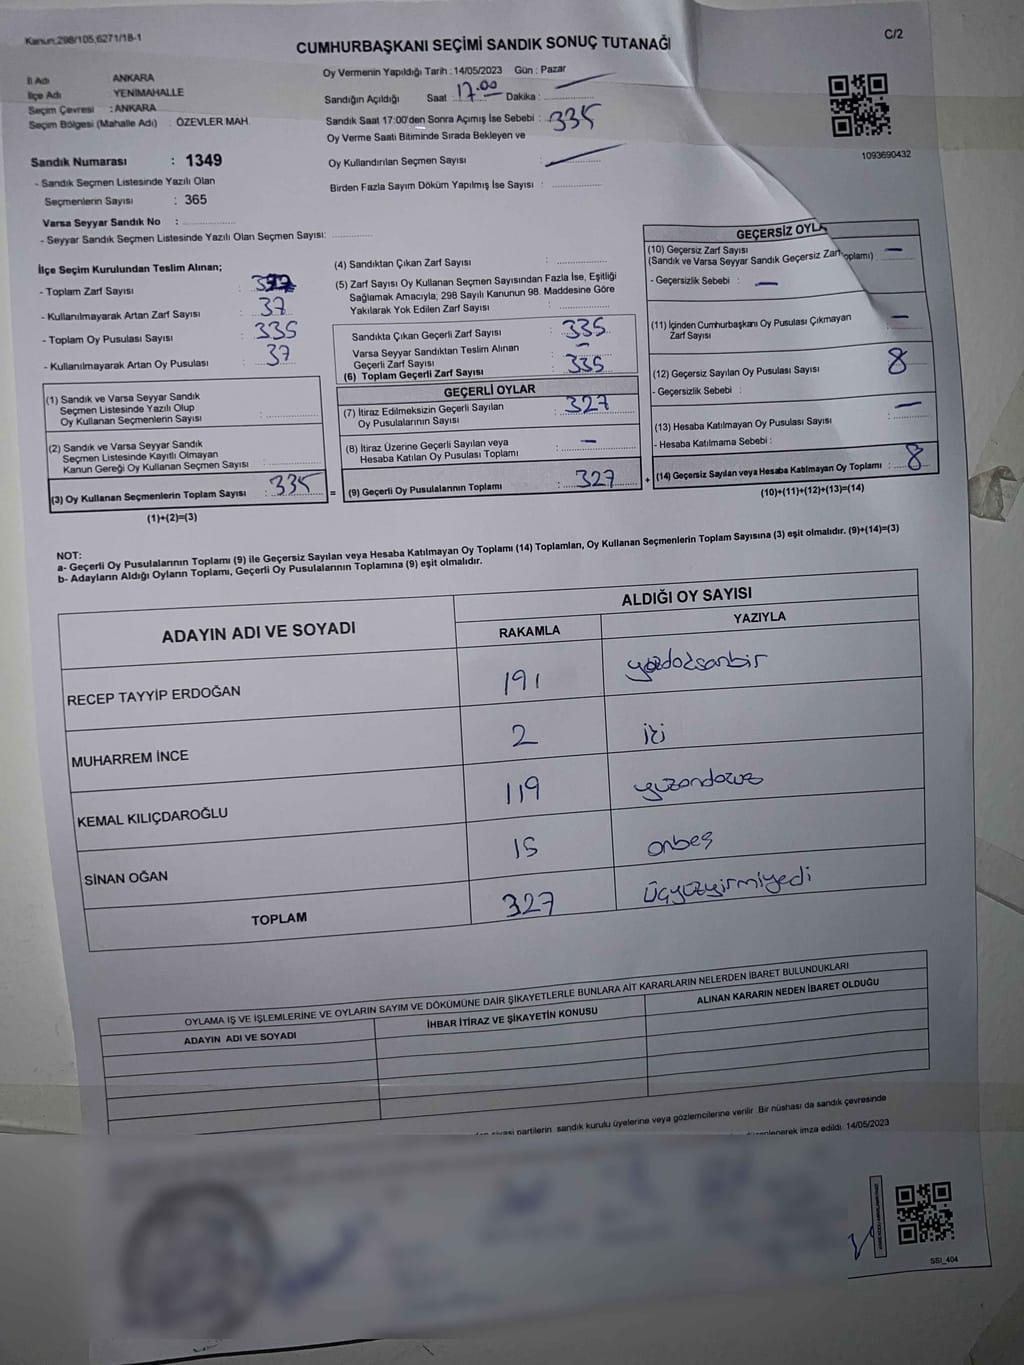 Kanun;298/105,6271/18-1
C/2
CUMHURBAŞKANI SEÇİMİ SANDIK SONUÇ TUTANAĞI
İl Adı ANKARA
İlçe Adı YENİMAHALLE
Seçim Çevresi : ANKARA
Seçim Bölgesi (Mahalle Adı) : ÖZEVLER MAH.
Oy Vermenin Yapıldığı Tarih : 14/05/2023 Gün : Pazar
Sandığın Açıldığı Saat : 17.00 Dakika :
Sandık Saat 17:00'den Sonra Açımış İse Sebebi : 335
Oy Verme Saati Bitiminde Sırada Bekleyen ve
Oy Kullandırılan Seçmen Sayısı :
Birden Fazla Sayım Döküm Yapılmış İse Sayısı :
1093690432
Sandık Numarası : 1349
- Sandık Seçmen Listesinde Yazılı Olan
Seçmenlerin Sayısı : 365
Varsa Seyyar Sandık No :
- Seyyar Sandık Seçmen Listesinde Yazılı Olan Seçmen Sayısı:
İlçe Seçim Kurulundan Teslim Alınan;
- Toplam Zarf Sayısı :
- Kullanılmayarak Artan Zarf Sayısı : 37
- Toplam Oy Pusulası Sayısı : 335
- Kullanılmayarak Artan Oy Pusulası : 37
(1) Sandık ve Varsa Seyyar Sandık
Seçmen Listesinde Yazılı Olup
Oy Kullanan Seçmenlerin Sayısı :
(2) Sandık ve Varsa Seyyar Sandık
Seçmen Listesinde Kayıtlı Olmayan
Kanun Gereği Oy Kullanan Seçmen Sayısı :
(3) Oy Kullanan Seçmenlerin Toplam Sayısı : 335 =
(1)+(2)=(3)
(4) Sandıktan Çıkan Zarf Sayısı :
(5) Zarf Sayısı Oy Kullanan Seçmen Sayısından Fazla İse, Eşitliği
Sağlamak Amacıyla; 298 Sayılı Kanunun 98. Maddesine Göre
Yakılarak Yok Edilen Zarf Sayısı :
Sandıkta Çıkan Geçerli Zarf Sayısı : 335
Varsa Seyyar Sandıktan Teslim Alınan
Geçerli Zarf Sayısı : -
(6) Toplam Geçerli Zarf Sayısı : 335
GEÇERLİ OYLAR
(7) İtiraz Edilmeksizin Geçerli Sayılan
Oy Pusulalarının Sayısı : 327
(8) İtiraz Üzerine Geçerli Sayılan veya
Hesaba Katılan Oy Pusulası Toplamı : -
(9) Geçerli Oy Pusulalarının Toplamı : 327 +
GEÇERSİZ OYLA
(10) Geçersiz Zarf Sayısı
(Sandık ve Varsa Seyyar Sandık Geçersiz Zarf oplamı) -
- Geçersizlik Sebebi : -
(11) İçinden Cumhurbaşkanı Oy Pusulası Çıkmayan
Zarf Sayısı -
(12) Geçersiz Sayılan Oy Pusulası Sayısı : 8
- Geçersizlik Sebebi :
(13) Hesaba Katılmayan Oy Pusulası Sayısı : -
- Hesaba Katılmama Sebebi :
(14) Geçersiz Sayılan veya Hesaba Katılmayan Oy Toplamı : 8
(10)+(11)+(12)+(13)=(14)
NOT:
a- Geçerli Oy Pusulalarının Toplamı (9) ile Geçersiz Sayılan veya Hesaba Katılmayan Oy Toplamı (14) Toplamları, Oy Kullanan Seçmenlerin Toplam Sayısına (3) eşit olmalıdır. (9)+(14)=(3)
b- Adayların Aldığı Oyların Toplamı, Geçerli Oy Pusulalarının Toplamına (9) eşit olmalıdır.
ADAYIN ADI VE SOYADI ALDIĞI OY SAYISI
RAKAMLA YAZIYLA
RECEP TAYYİP ERDOĞAN 191 yüzdoksanbir
MUHARREM İNCE 2 iki
KEMAL KILIÇDAROĞLU 119 yüzondokuz
SİNAN OĞAN 15 onbeş
TOPLAM 327 üçyüzyirmiyedi
OYLAMA İŞ VE İŞLEMLERİNE VE OYLARIN SAYIM VE DÖKÜMÜNE DAİR ŞİKAYETLERLE BUNLARA AİT KARARLARIN NELERDEN İBARET BULUNDUKLARI
ADAYIN ADI VE SOYADI İHBAR İTİRAZ VE ŞİKAYETİN KONUSU ALINAN KARARIN NEDEN İBARET OLDUĞU
siyasi partilerin sandık kurulu üyelerine veya gözlemcilerine verilir. Bir nüshası da sandık çevresinde
düzenlenerek imza edildi. 14/05/2023
SSI_404